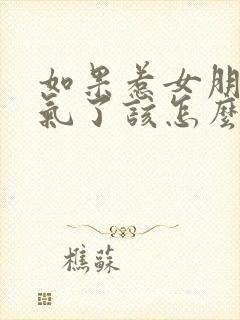 如果惹女朋
氣了該怎麼
樵蘇